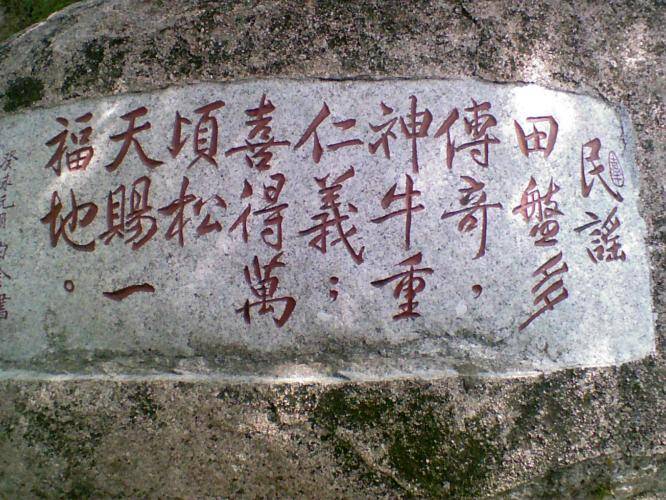 民謠
田盤多
傳奇，
神牛重
仁義；
喜得萬
頃松
天賜一
福地。